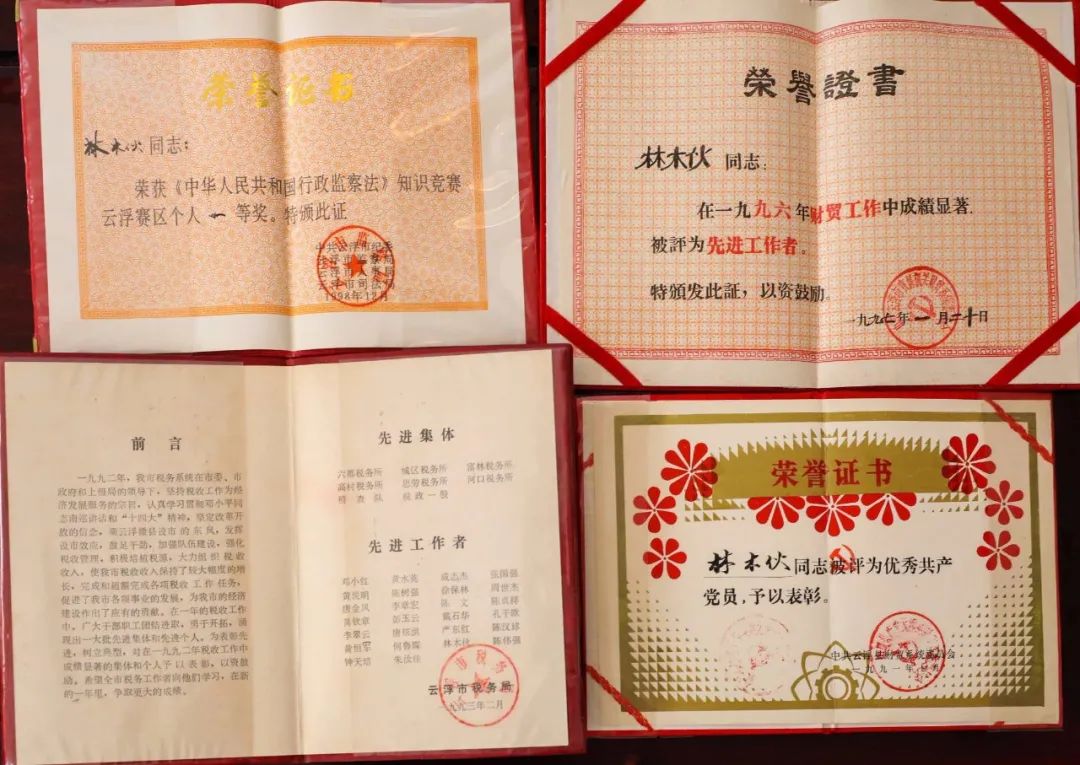 荣誉证书
林木伙同志：
荣获《中华人民共和国行政监察法》知识竞赛
云浮赛区个人一等奖。特颁此证
中共云浮市纪委
云浮市监察局
云浮市人事局
云浮市司法局
1998年12月
榮譽證書
林木伙 同志：
在一九九六年财贸工作中成績显著．
被評为先进工作者。
特頒发此証，以资鼓励。
一九九七年一月二十日
前言
一九九二年，我市税务系统在市委、市
政府和上级局的领导下，坚持税收工作为经
济发展服务的宗旨，认真学习贯彻邓小平同
志南巡讲话和“十四大”精神，坚定改革开
放的信念，乘云浮撤县设市的东风，发挥
设市效应，鼓足干劲，加强队伍建设，强化
税收管理，积极培植税源，大力组织税收
收入，使我市税收收入保持了较大幅度的增
长，完成和超额完成各项税收工作任务，
促进了我市各项事业的发展，为我市的经济
建设作出了应有的贡献。在一年的税收工作
中，广大干部职工团结进取，勇于开拓，涌
现出一大批先进集体和先进个人。为表彰先
进，树立典型，对在一九九二年税收工作中
成绩显著的集体和个人予以表彰，以资鼓
励。希望全市税务工作者向他们学习，在新
的一年里，争取更大的成绩。
先进集体
六都税务所 城区税务所 富林税务所
高村税务所 思劳税务所 河口税务所
稽查队 税政一股
先进工作者
邓小红 黄水英 成志杰 张国强
黄茂明 陈树强 徐保林 周世杰
唐金凤 李章宏 陈文 陈贞祥
莫钦章 彭玉云 戴石华 孔于欧
李攀云 唐炳洪 严东红 陈汉球
黄恒军 何鲁 林木伙 陈伟强
钟天培 朱汝佳
云浮市税务局
一九九三年二月
荣誉证书
林木伙同志被评为优秀共产
党员，予以表彰。
中共云浮县财贸系统委员会
一九九一年 月